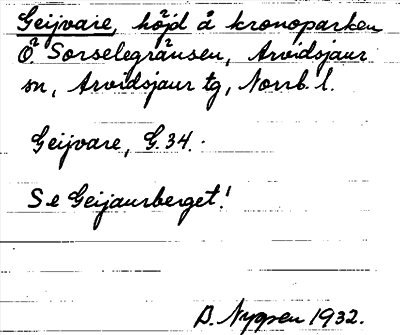 Geijvare, höjd å kronoparken
Ö. Sorselegränsen, Arvidsjaur
sn, Arvidsjaur tg, Norrb. l.
Geijvare, G. 34.
Se Geijaurberget!
B. Nygren 1932.